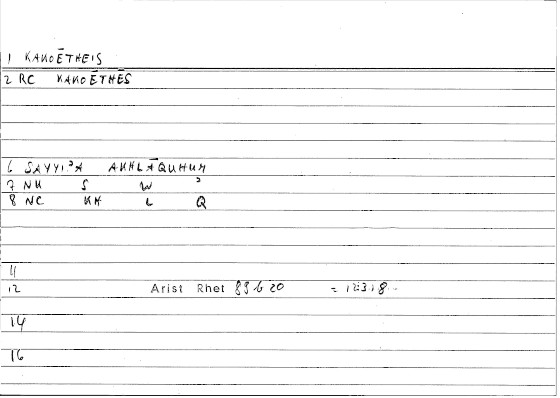 1 KAKOĒTHEIS
2 RC KAKOĒTHĒS
6 SAYYIʾA AKHLĀQUHUM
7 NK S W ʾ
8 NC KH L Q
4
12 Arist Rhet 89b20 = 123,8
14
16